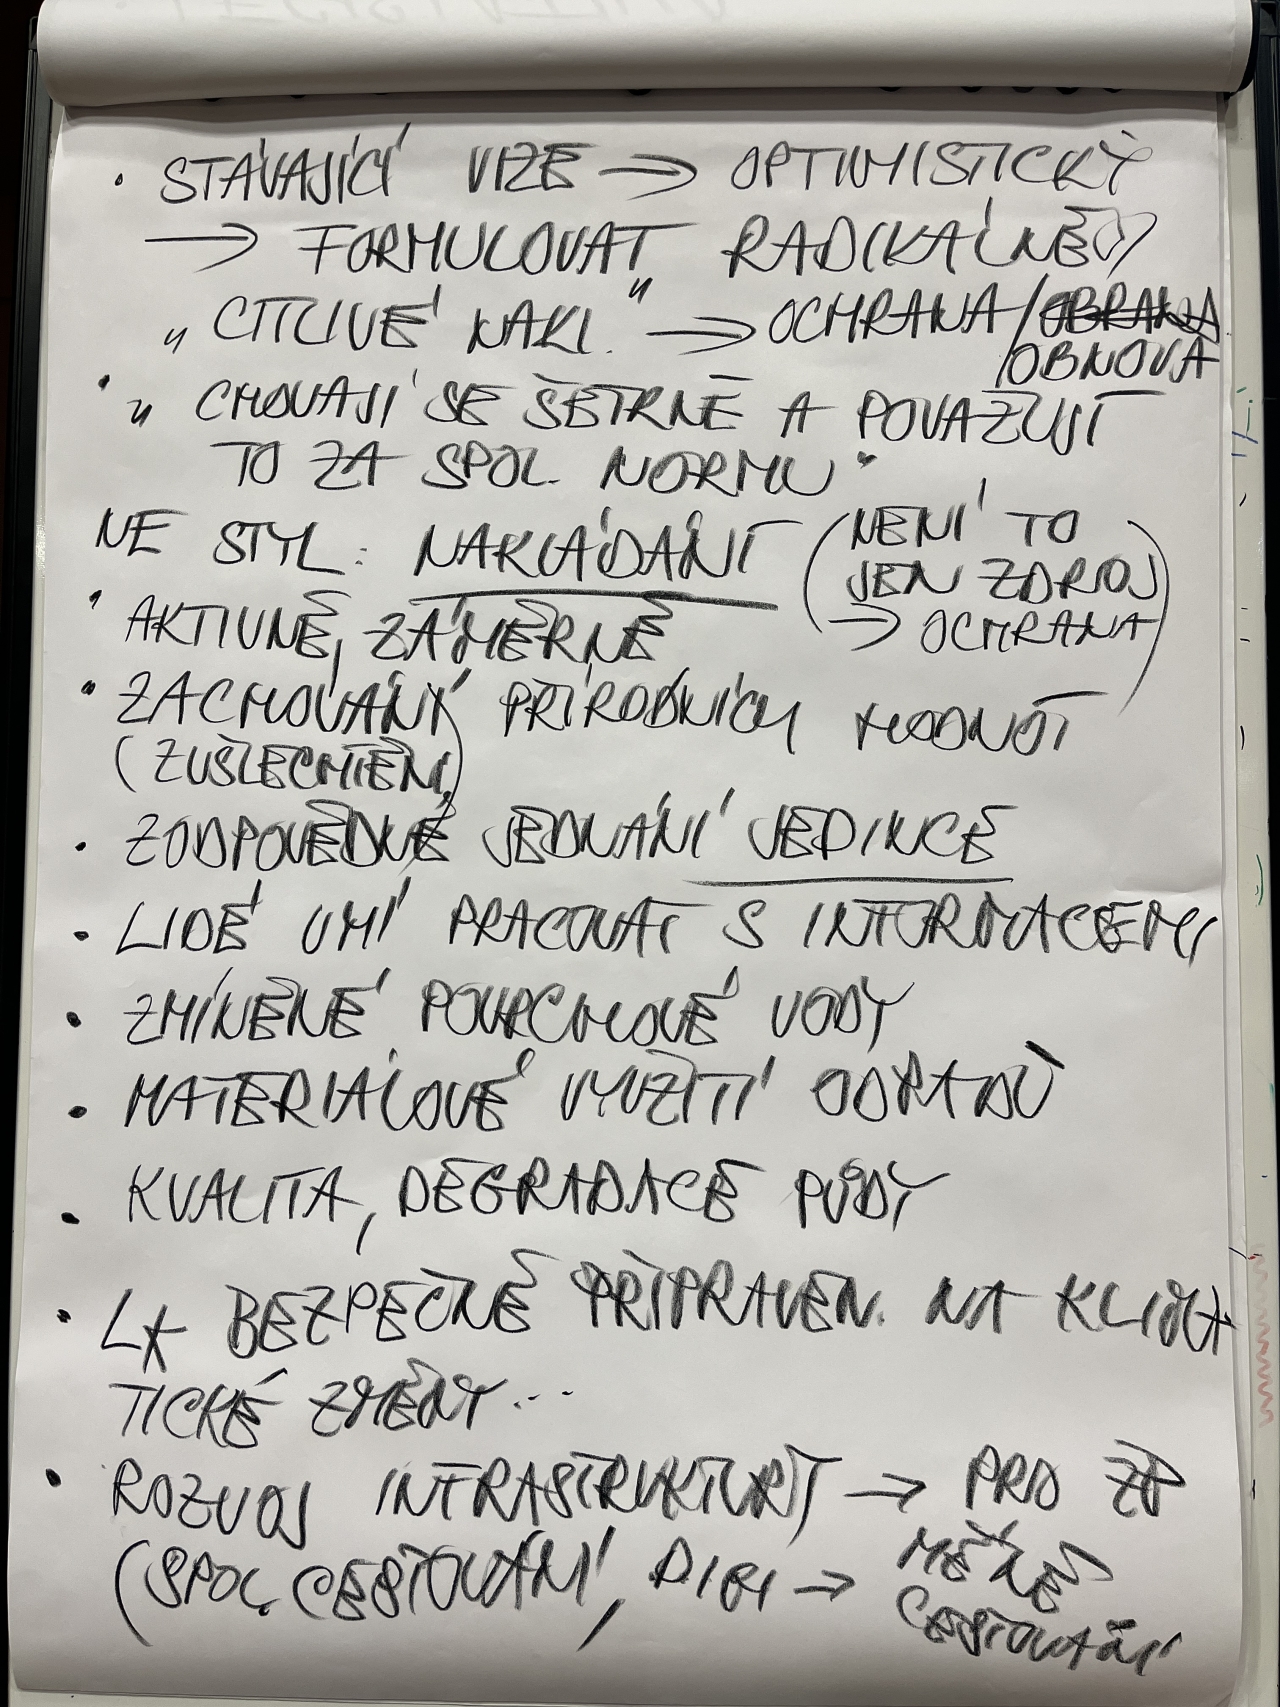 • STÁVAJÍCÍ VIZE → OPTIMISTICKÝ
→ FORMULOVAT RADIKÁLNĚ
„CITLIVÉ NAKL." → OCHRANA / OBNOVA
• „CHOVAJÍ SE ŠETRNĚ A POVAŽUJÍ
TO ZA SPOL. NORMU"
NE STYL: NAKLÁDÁNÍ (NENÍ TO
JEN ZDROJ
→ OCHRANA)
• AKTIVNĚ, ZÁMĚRNĚ
• ZACHOVÁNÍ PŘÍRODNÍCH HODNOT
(ZUŠLECHTĚNÍ)
• ZODPOVĚDNÉ JEDNÁNÍ JEDINCE
• LIDÉ UMÍ PRACOVAT S INFORMACEMI
• ZMÍNĚNÉ POVRCHOVÉ VODY
• MATERIÁLOVÉ VYUŽITÍ ODPADŮ
• KVALITA, DEGRADACE PŮDY
• BEZPEČNĚ PŘIPRAVEN. NA KLIMA
TICKÉ ZMĚNY...
• ROZVOJ INFRASTRUKTURY → PRO ŽP
(SPOL. CESTOVÁNÍ, DIGI → MÉNĚ
CESTOVÁNÍ